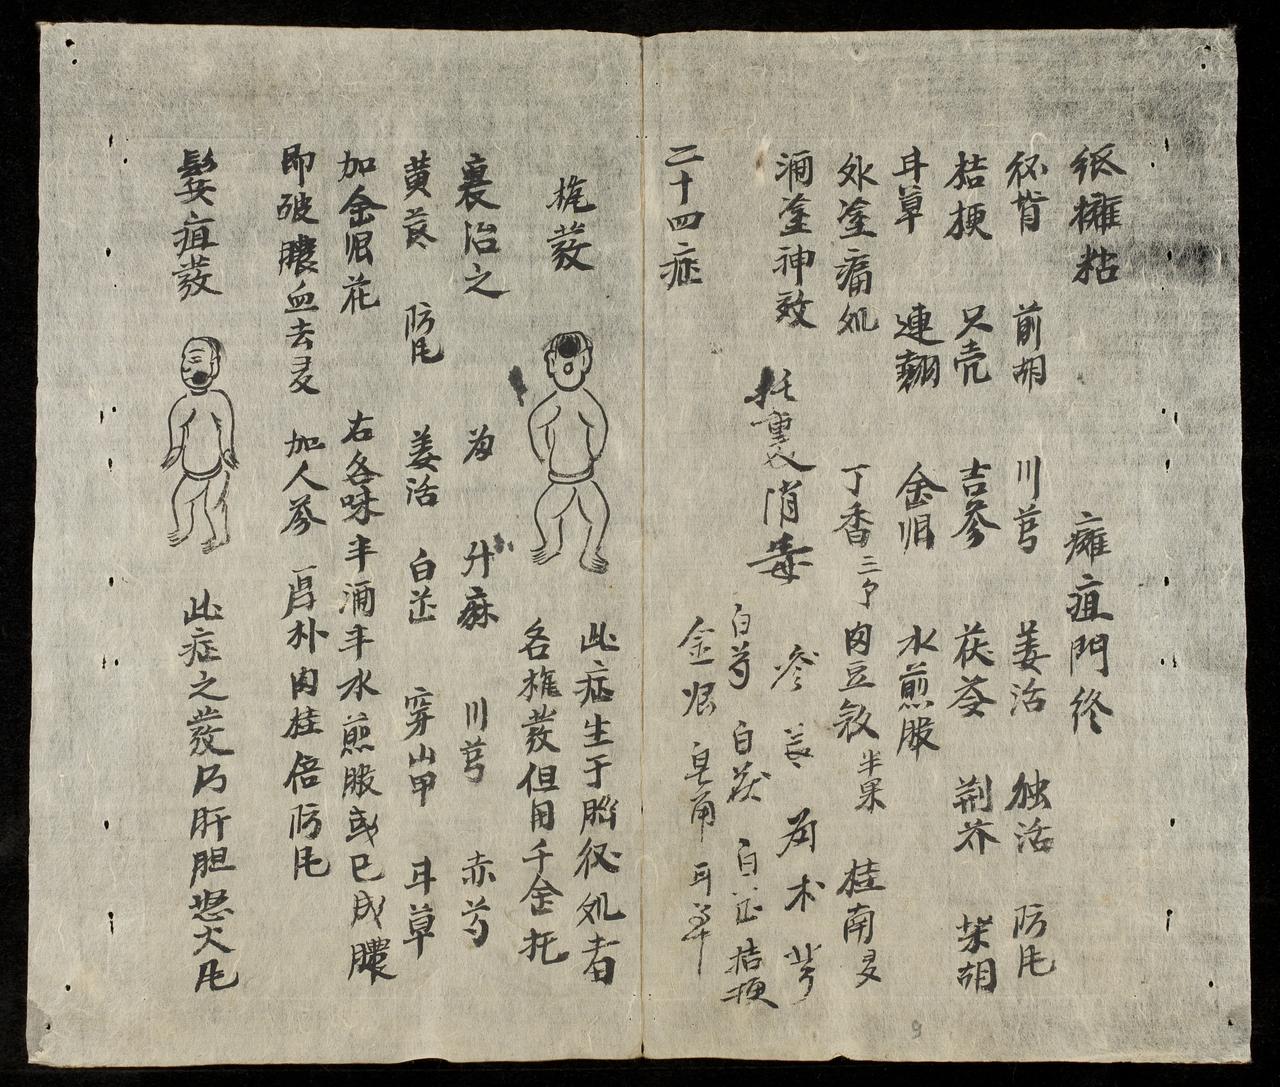 纸擁粘 癰疽門终
㣲背 前胡 川芎 姜活 独活 防凮
桔梗 只壳 吉參 茯苓 荆芥 柴胡
耳草 連翹 金 水煎服
外塗痛处 丁香三 肉豆 半果 桂南
酒塗神效 托裏消毒 參 芪 苟 术 芎
白芍 白茯 白芷 桔梗
金 皂角 耳草
二十四症
㭰發 此症生于脑後处者
各㭰發但用千金托
裏治之 为 升麻 川芎 赤芍
黄芪 防凮 姜活 白芷 穿山甲 耳草
加金 花 右各味半酒半水煎服或已成膿
即破膿血去 加人參 厚朴 肉桂 倍防凮
鬓疽發 此症之發乃肝胆 火凮